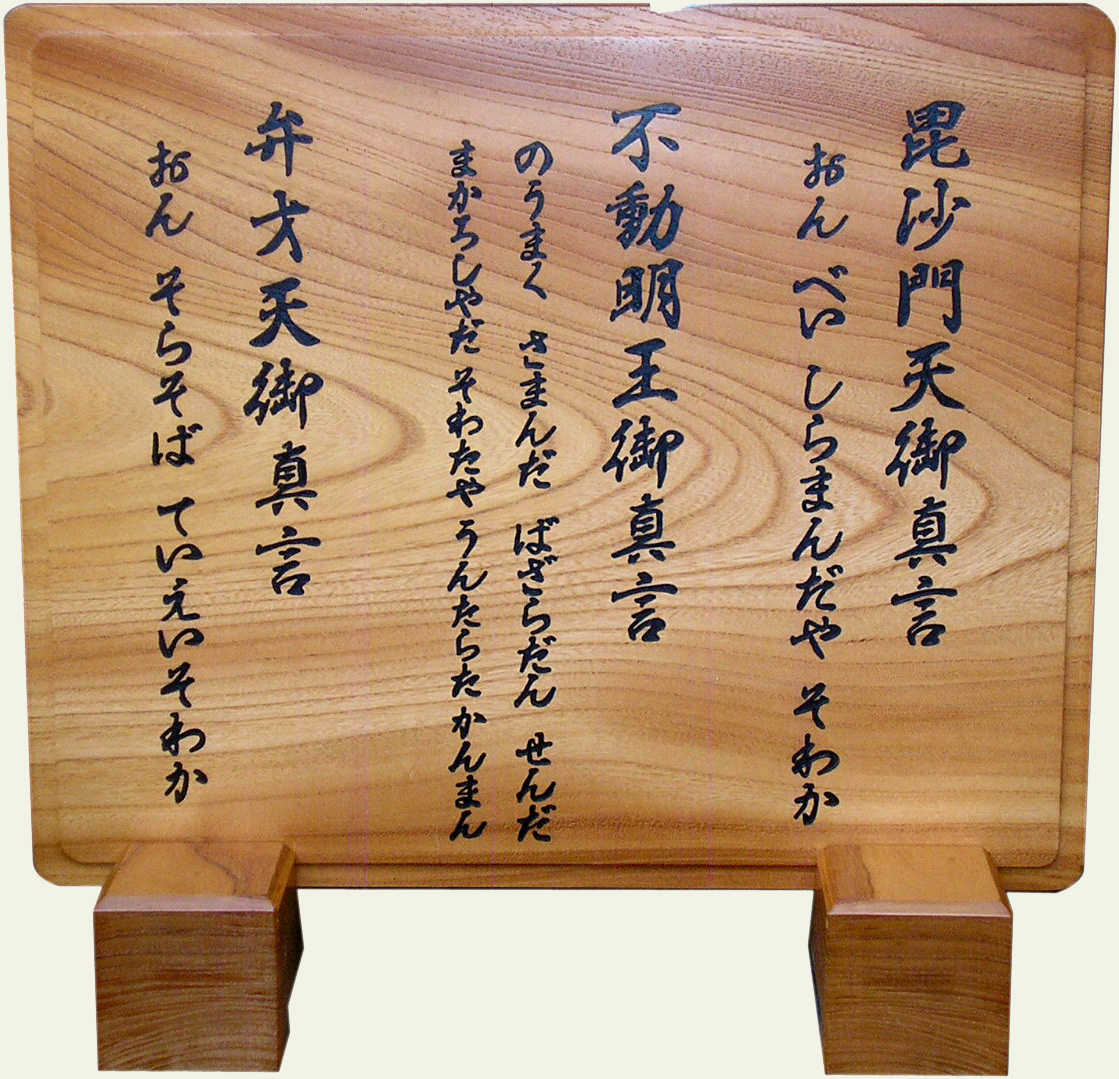 毘沙門天御真言
おん べい しらまんだや そわか
不動明王御真言
のうまく さまんだ ばざらだん せんだ
まかろしやだ そわたや うんたらたかんまん
弁才天御真言
おん そらそば ていえいそわか